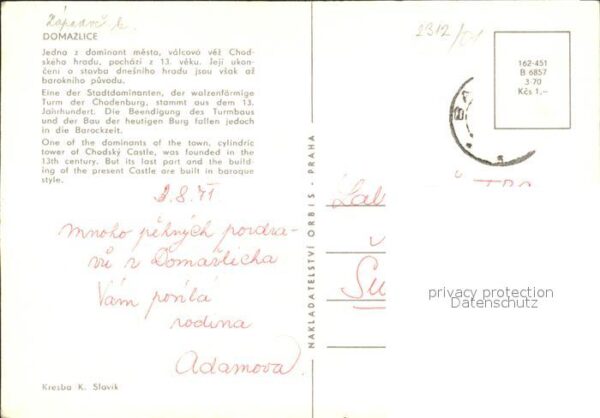 Západoč. k.
2312/
DOMAŽLICE
Jedna z dominant města, válcová věž Chod-
ského hradu, pochází z 13. věku. Její ukon-
čení a stavba dnešního hradu jsou však až
barokního původu.
Eine der Stadtdominanten, der walzenförmige
Turm der Chodenburg, stammt aus dem 13.
Jahrhundert. Die Beendigung des Turmbaus
und der Bau der heutigen Burg fallen jedoch
in die Barockzeit.
One of the dominants of the town, cylindric
tower of Chodský Castle, was founded in the
13th century. But its last part and the build-
ing of the present Castle are built in baroque
style.
2.8.71
Mnoho pěkných pozdra-
vů z Domažlicka
Vám posílá
rodina
Adamova.
Kresba K. Slavík
NAKLADATELSTVÍ ORBIS - PRAHA
162-451
B 6857
3-70
Kčs 1,–
privacy protection
Datenschutz